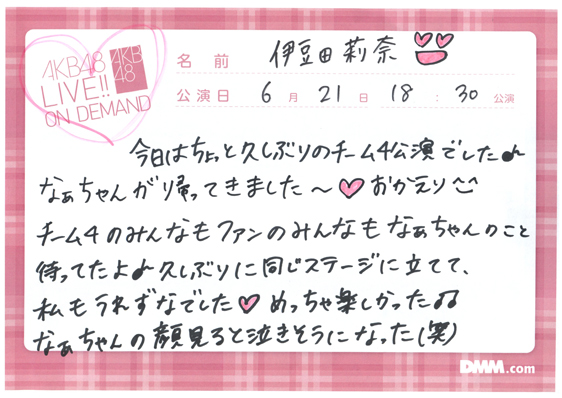 AKB48
LIVE!!
ON DEMAND
AKB
48
名前 伊豆田莉奈
公演日 6月21日 18:30公演
今日はちょっと久しぶりのチーム4公演でした♪
なぁちゃんが帰ってきました〜♥おかえり^^
チーム4のみんなもファンのみんなもなぁちゃんのこと
待ってたよ♪久しぶりに同じステージに立てて、
私もうれずなでした♥めっちゃ楽しかった♫
なぁちゃんの顔見ると泣きそうになった(笑)
DMM.com